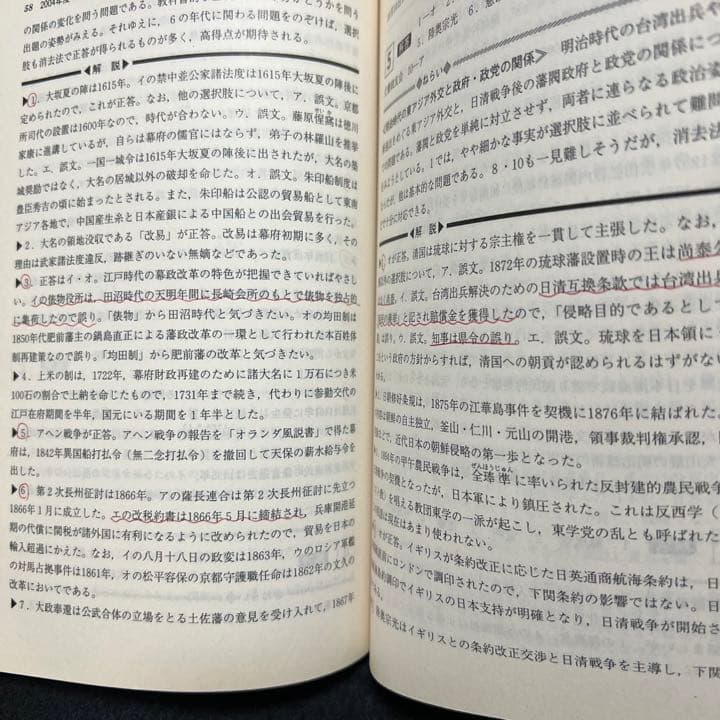 58 2004年度
の関係の変化を問う問題である。
出題の姿勢がみえる。それゆえに、6の年代に関わる問題をのぞけば、選択
肢も消去法で正答が得られるものが多く、高得点が期待される。
◀解 説▶
▶1. 大坂夏の陣は1615年。イの禁中並公家諸法度は1615年大坂夏の陣後に
定められたので、これが正答。なお、他の選択肢について、ア. 誤文。京都
所司代の設置は1600年なので、時代が合わない。ウ. 誤文。藤原惺窩は徳川
家康に進講しているが、自らは幕府の儒官にはならず、弟子の林羅山を推挙
した。エ. 誤文。一国一城令は1615年大坂夏の陣後に出されたが、大名の築
城奨励ではなく、大名の居城以外の破却を命じた。オ. 誤文。朱印船制度は
豊臣秀吉の頃に始まったとされる。また、朱印船は公認の貿易船として東南
アジア各地で、中国産生糸と日本産銀による中国船との出会貿易を行った。
▶2. 大名の領地没収である「改易」が正答。改易は幕府初期に多く、その
理由は武家諸法度違反、跡継ぎのいない無嗣などであった。
▶3. 正答はイ・オ。江戸時代の幕政改革の特色が把握できていればやさし
い。イの俵物役所は、田沼時代の天明年間に長崎会所のもとで俵物を独占的
に集荷したので誤り。「俵物」から田沼時代と気づきたい。オの均田制は
1850年代肥前藩主の鍋島直正による藩政改革の一環として行われた本百姓体
制再建策なので誤り。「均田制」から肥前藩の改革と気づきたい。
▶4. 上米の制は、1722年、幕府財政再建のために諸大名に1万石につき米
100石の割合で上納を命じたもので、1731年まで続き、代わりに参勤交代の
江戸在府期間を半年、国元にいる期間を1年半とした。
▶5. アヘン戦争が正答。アヘン戦争の報告を「オランダ風説書」で得た幕
府は、1842年異国船打払令（無二念打払令）を撤回して天保の薪水給与令を
出した。
▶6 第2次長州征討は1866年。アの薩長連合は第2次長州征討に先立つ
1866年1月に成立した。エの改税約書は1866年5月に締結され、兵庫開港延
期の代償に関税が諸外国に有利になるように改められたので、貿易を日本の
輸入超過にかえた。なお、イの八月十八日の政変は1863年、ウのロシア軍艦
の対馬占拠事件は1861年、オの松平容保の京都守護職任命は1862年の文久の
改革においてである。
▶7. 大政奉還は公武合体の立場をとる土佐藩の意見を受け入れて、1867年
1-オ
5. 陸奥宗光 6.
5 解答
10-ア
≪ねらい≫ 明治時代の台湾出兵や
東アジア外交と政府・政党の関係＞
東アジア外交と、日清戦争後の藩閥政府と政党の関係につ
藩閥と政党を単純に対立させず、両者に連らなる政治姿
1では、やや細かな事実が選択肢に並べられて難問
他は基本的な問題である。8・10も一見難しそうだが、消去法
で十分に対応できる。
◀解 説▶
オが正答。清国は琉球に対する宗主権を一貫して主張した。なお、
の選択肢について、ア. 誤文。1872年の琉球藩設置時の王は尚泰
イ. 誤文。台湾出兵解決のための日清互換条款では台湾出兵
と記され賠償金を獲得したので、「侵略目的であるとし
は誤り。ウ. 誤文。知事は県令の誤り。エ. 誤文。琉球を日本領に
という政府の方針からすれば、清国への朝貢が認められるはずがない
日朝修好条規は、1875年の江華島事件を契機に1876年に結ばれた
朝鮮の自主独立、釜山・仁川・元山の開港、領事裁判権承認、
近代日本の朝鮮侵略の第一歩となった。
1894年の甲午農民戦争は、全琫準に率いられた反封建的農民戦争
ぜんほうじゅん
戦争の契機となったが、日本軍により鎮圧された。これは反西学（
を唱える教団東学の一派が起こし、東学党の乱とも呼ばれた
は現在はあまり使われない。
が正答。イギリスが条約改正に応じた日英通商航海条約は、日
にロンドンで調印されたので、下関条約の影響ではない。日
調印でイギリスの日本支持が明確となり、日清戦争が開始さ
陸奥宗光はイギリスとの条約改正交渉と日清戦争を主導し、下関